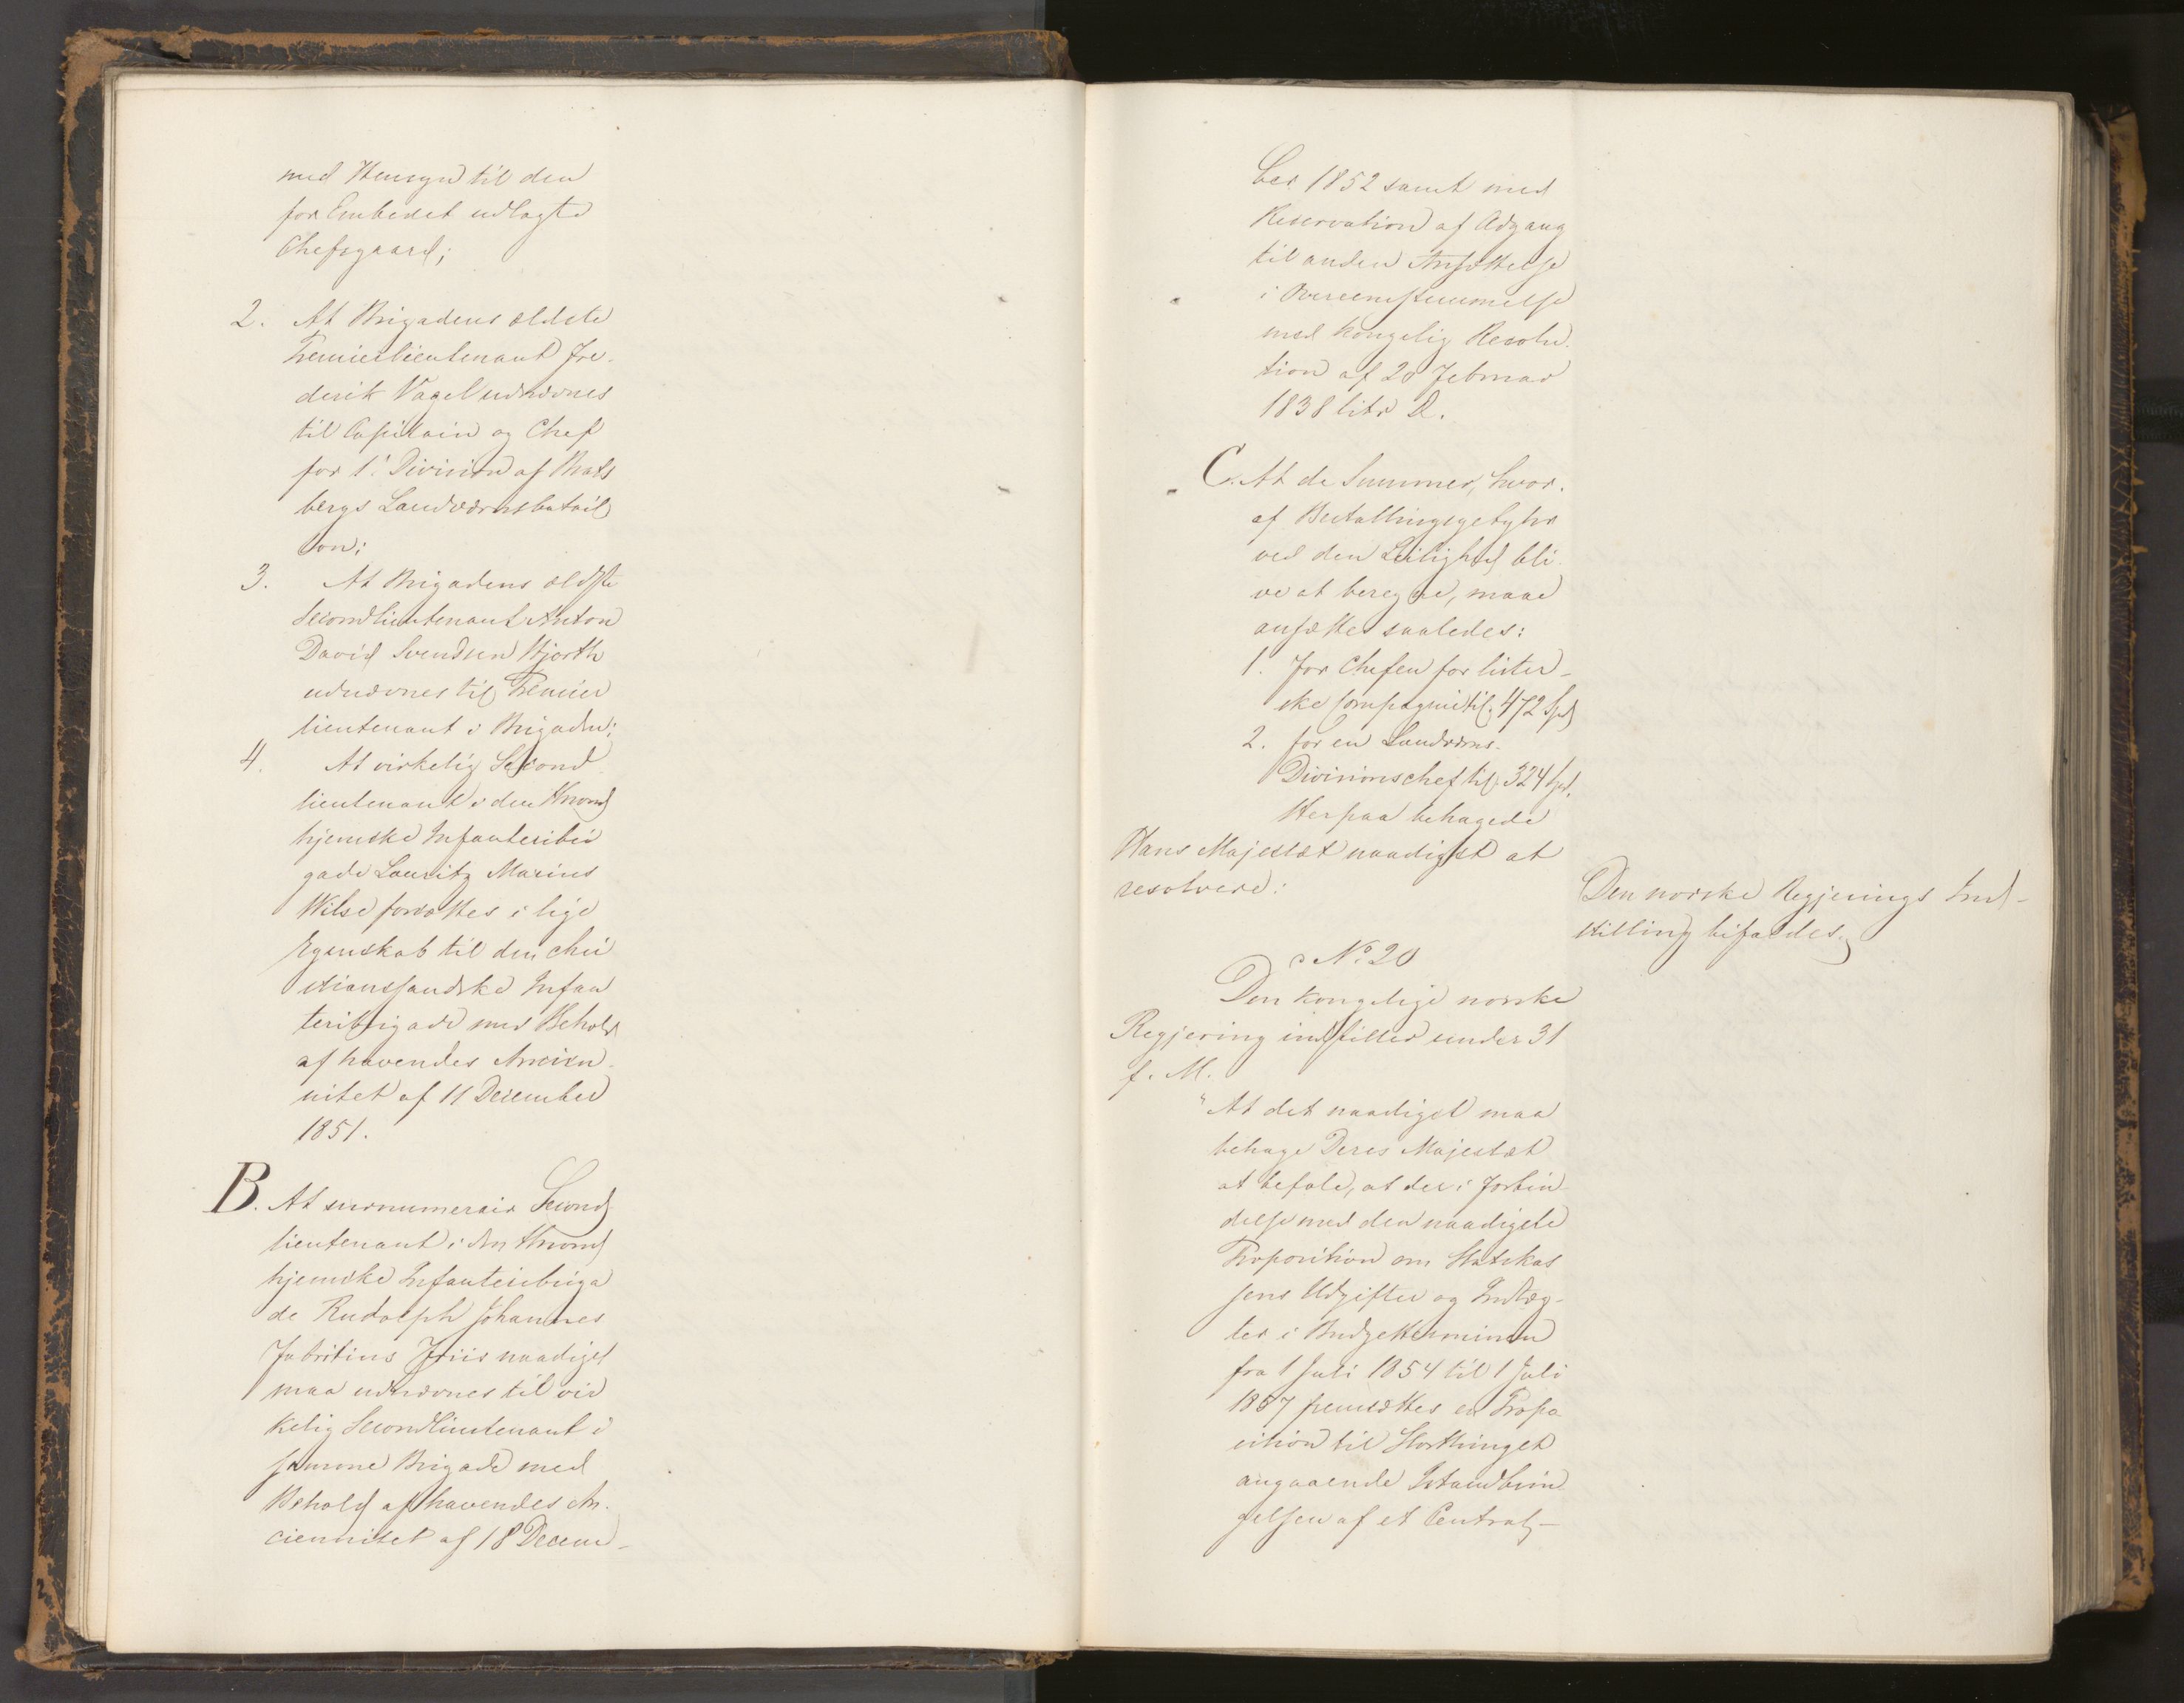 med Hensyn til den
for Embedet udlagte
Chefsgaard;
2. At Brigadens ældste
Premierlieutenant Fre-
derik Vagel udnævnes
til Capitain og Chef
for 1ste Division af Brats
bergs Landværnsbatail
lon;
3. At Brigadens ældste
Secondlieutenant Anton
David Svendsen Hjorth
udnævnes til Premier
lieutenant i Brigaden;
4. At virkelig Second
lieutenant i den thrond
hjemske Infanteribri
gade Lauritz Marius
Wilse forsættes i lige
Egenskab til den chri
stianssandske Infan
teribrigade med Behold
af havendes Ancien
nitet af 11 December
1851.
B. At surnumerair Second
lieutenant i den thrond
hjemske Infanteribriga
de Rudolph Johannes
Fabritius Friis naadigst
maa udnævnes til vir
kelig Secondlieutenant i
samme Brigade med
Behold af havendes An-
ciennitet af 18 Decem-
ber 1852 samt med
Reservation af Adgang
til anden Ansættelse
i Overeensstemmelse
med kongelig Resolu-
tion af 20 Februar
1838 litr D.
C. At de Summer, hvor-
af Bestallingsgebyhr
ved den Leilighed bli
ve at beregne, maae
ansættes saaledes:
1. For Chefen for lister-
ske Compagni til 472 Spd
2. for en Landværns-
Divisionschef til 324 Spd.
Herpaa behagede
Hans Majestæt naadigst at
resolvere:
Den norske Regjerings Ind-
stilling bifaldes.
No 20
Den kongelige norske
Regjering indstiller under 31
f. M.
"At det naadigst maa
behage Deres Majestæt
at befale, at der i Forbin
delse med den naadigste
Proposition om Statskas
sens Udgifter og Indtæg-
ter i Budgetterminen
fra 1 Juli 1854 til 1 Juli
1857 fremsættes en Propo
sition til Storthinget
angaaende Istandbrin
gelsen af et Central-